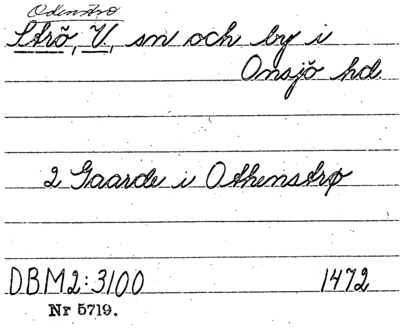 Odenströ
Strö, V., sn och by i
Onsjö hd.
2 Gaarde i Othenstrø
DBM2:3100 1472
Nr 5719.